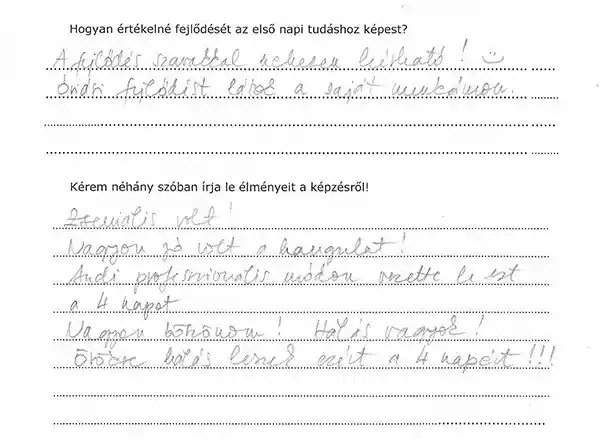 Hogyan értékelné fejlődését az első napi tudáshoz képest?
A fejlődés szavakkal nehezen leírható! :)
Óriási fejlődést látok a saját munkámon.
Kérem néhány szóban írja le élményeit a képzésről!
Zseniális volt!
Nagyon jó volt a hangulat!
Andi professzionális módon vezette le ezt
a 4 napot
Nagyon köszönöm! Hálás vagyok!
Örökre hálás leszek ezért a 4 napért!!!